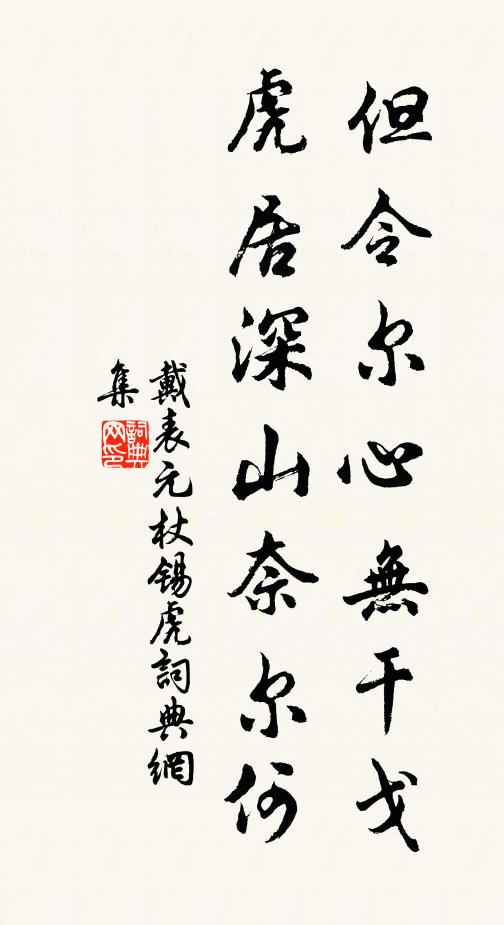 但令尔心無干戈
虎居深山奈尔何
戴表元杖锡虎詞典網
集
詞典网印